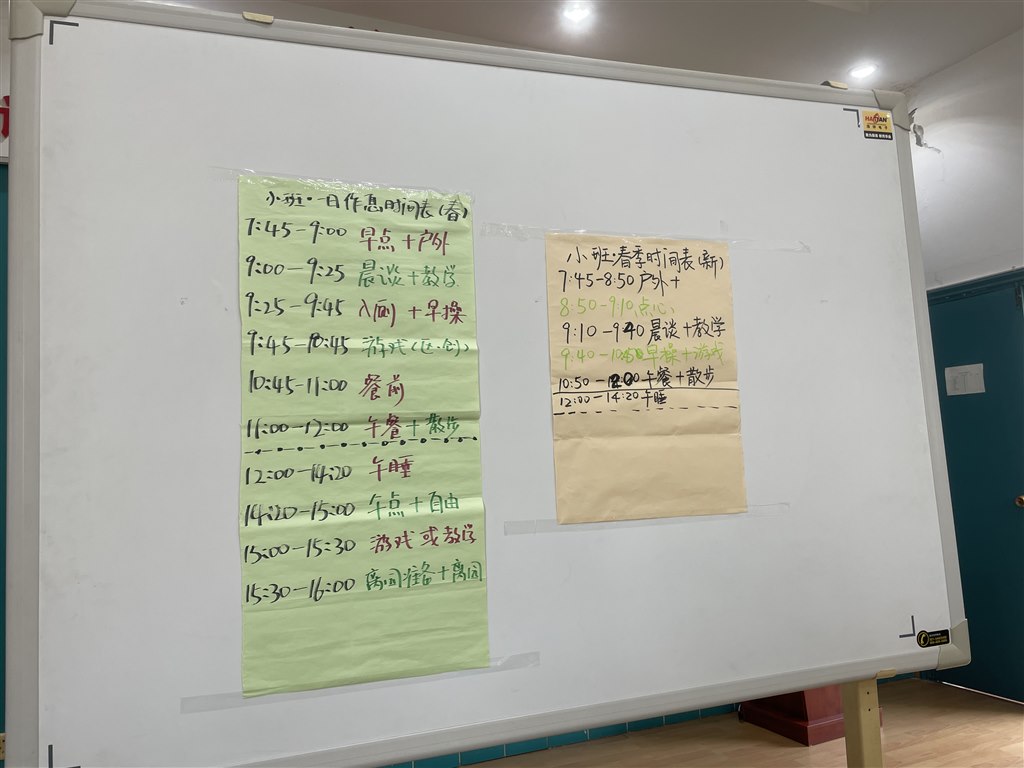 小班·一日作息时间表(春)
7:45-9:00 早点+户外
9:00-9:25 晨谈+教学
9:25-9:45 入厕+早操
9:45-10:45 游戏(区·创)
10:45-11:00 餐前
11:00-12:00 午餐+散步
12:00-14:20 午睡
14:20-15:00 午点+自由
15:00-15:30 游戏或教学
15:30-16:00 离园准备+离园
小班·春季时间表(新)
7:45-8:50 户外+
8:50-9:10 点心
9:10-9:40 晨谈+教学
9:40-10:50 早操+游戏
10:50-12:00 午餐+散步
12:00-14:20 午睡